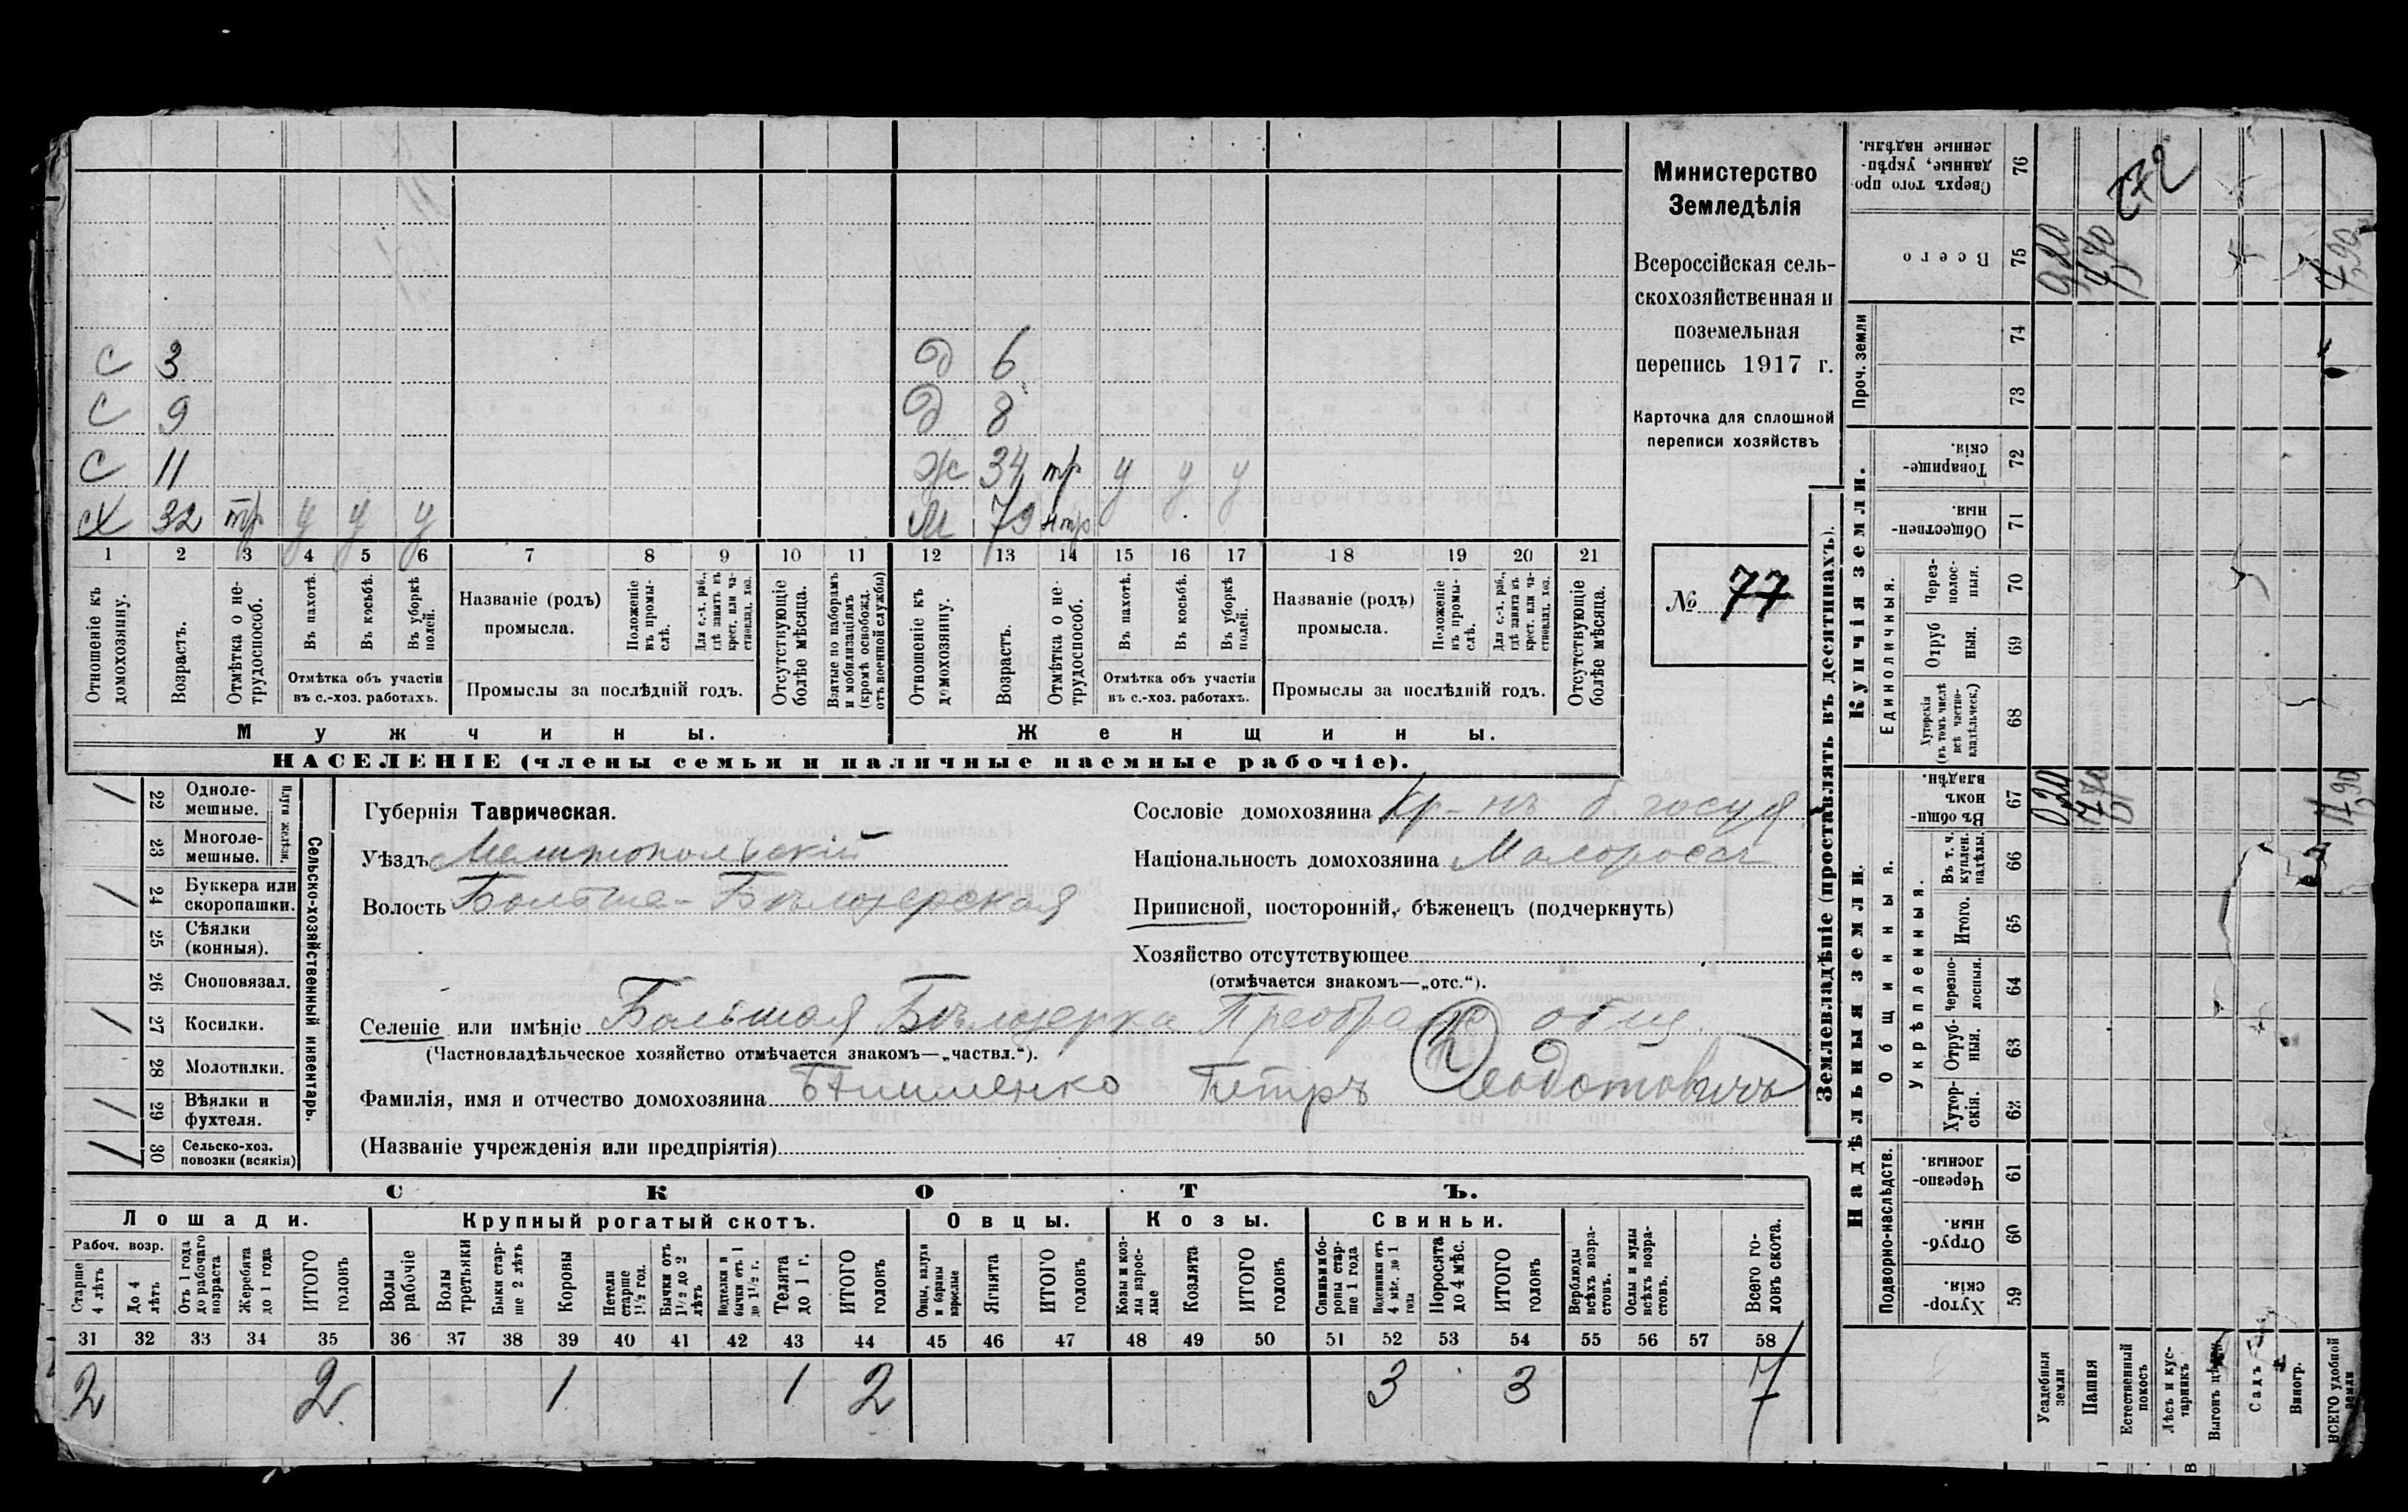 С 3 Д 6
С 9 Д 8
С 11 Ж 34 тр у у у
Х 32 тр у у у М 79 нтр
1 2 3 4 5 6 7 8 9 10 11 12 13 14 15 16 17 18 19 20 21
Отношеніе къ домохозяину.
Возрастъ.
Отмѣтка о не-трудоспособ.
Въ пахотѣ.
Въ косьбѣ.
Въ уборкѣ полей.
Отмѣтка объ участіи
въ с.-хоз. работахъ.
Названіе (родъ)
промысла.
Положеніе въ промы-слѣ.
Для с.-х. раб., гдѣ занятъ въ крест. или ча-стновлад. хоз.
Промыслы за послѣдній годъ.
Отсутствующіе болѣе мѣсяца.
Взятые по наборамъ и мобилизаціямъ (кромѣ освобожд. отъ военной службы)
Отношеніе къ домохозяину.
Возрастъ.
Отмѣтка о не-трудоспособ.
Въ пахотѣ.
Въ косьбѣ.
Въ уборкѣ полей.
Отмѣтка объ участіи
въ с.-хоз. работахъ.
Названіе (родъ)
промысла.
Положеніе въ промы-слѣ.
Для с.-х. раб., гдѣ занята въ крест. или ча-стновлад. хоз.
Промыслы за послѣдній годъ.
Отсутствующіе болѣе мѣсяца.
Мужчины. Женщины.
НАСЕЛЕНІЕ (члены семьи и наличные наемные рабочіе).
Министерство
Земледѣлія
Всероссійская сель-
скохозяйственная и
поземельная
перепись 1917 г.
Карточка для сплошной
переписи хозяйствъ
№ 77
Сельско-хозяйственный инвентарь.
Плуги желѣзн.
/ 22 Одноле-
мешные.
23 Многоле-
мешные.
/ 24 Буккера или
скоропашки.
25 Сѣялки
(конныя).
26 Сноповязал.
/ 27 Косилки.
28 Молотилки.
/ 29 Вѣялки и
фухтеля.
1 30 Сельско-хоз.
повозки (всякія)
Губернія Таврическая.
Уѣздъ Мелитопольскій
Волость Больше-Бѣлозерская
Сословіе домохозяина Кр-нъ б. госуд.
Національность домохозяина Малороссъ
Приписной, посторонній, бѣженецъ (подчеркнуть)
Хозяйство отсутствующее
(отмѣчается знакомъ—„отс.“).
Селеніе или имѣніе Большая Бѣлозерка Преображ общ.
(Частновладѣльческое хозяйство отмѣчается знакомъ—„частвл.“).
Фамилія, имя и отчество домохозяина Петръ Феодотовичъ
(Названіе учрежденія или предпріятія)
СКОТЪ.
Лошади. Крупный рогатый скотъ. Овцы. Козы. Свиньи.
Рабоч. возр.
Старше 4 лѣтъ
До 4 лѣтъ
Отъ 1 года до рабочаго возраста
Жеребята до 1 года
ИТОГО головъ
Волы рабочіе
Волы третьяки
Быки стар-ше 2 лѣтъ
Коровы
Нетели старше 1½ год.
Бычки отъ 1½ до 2 лѣтъ
Подтелки и бычки отъ 1 до 1½ г.
Телята до 1 г.
ИТОГО головъ
Овцы, валухи и бараны взрослые
Ягнята
ИТОГО головъ
Козы и коз-лы взрос-лые
Козлята
ИТОГО головъ
Свиньи и бо-ровы стар-ше 1 года
Подсвинки отъ 4 мѣс. до 1 года
Поросята до 4 мѣс.
ИТОГО головъ
Верблюды всѣхъ возра-стовъ.
Ослы и мулы всѣхъ возра-стовъ.
Всего го-ловъ скота.
31 32 33 34 35 36 37 38 39 40 41 42 43 44 45 46 47 48 49 50 51 52 53 54 55 56 57 58
2 2 1 1 2 3 3 7
Землевладѣніе (проставлять въ десятинахъ).
Надѣльныя земли. Купчія земли.
Подворно-наслѣдств.
Общинныя.
Укрѣпленныя.
Единоличныя.
Проч. земли
Сверхъ того про-данные, укрѣп-ленные надѣлы. 76
Всего 75
74
73
Товарище-скія. 72
Обществен-ныя. 71
Через-полос-ныя. 70
Отруб ныя. 69
Хуторскія (въ томъ числѣ всѣ частно-владѣльческ.) 68
Въ общин-номъ владѣн. 67
Въ т. ч. куплен. надѣлы. 66
Итого. 65
Черезпо-лосныя. 64
Отруб-ныя. 63
Хутор-скія. 62
Черезпо-лосныя. 61
Отруб-ныя. 60
Хутор-скія. 59
Усадебныя земли 0,20 0,20
Пашня
Естественный покосъ
Лѣсъ и кус-тарникъ
Садъ
Виногр.
ВСЕГО удобной земли
272